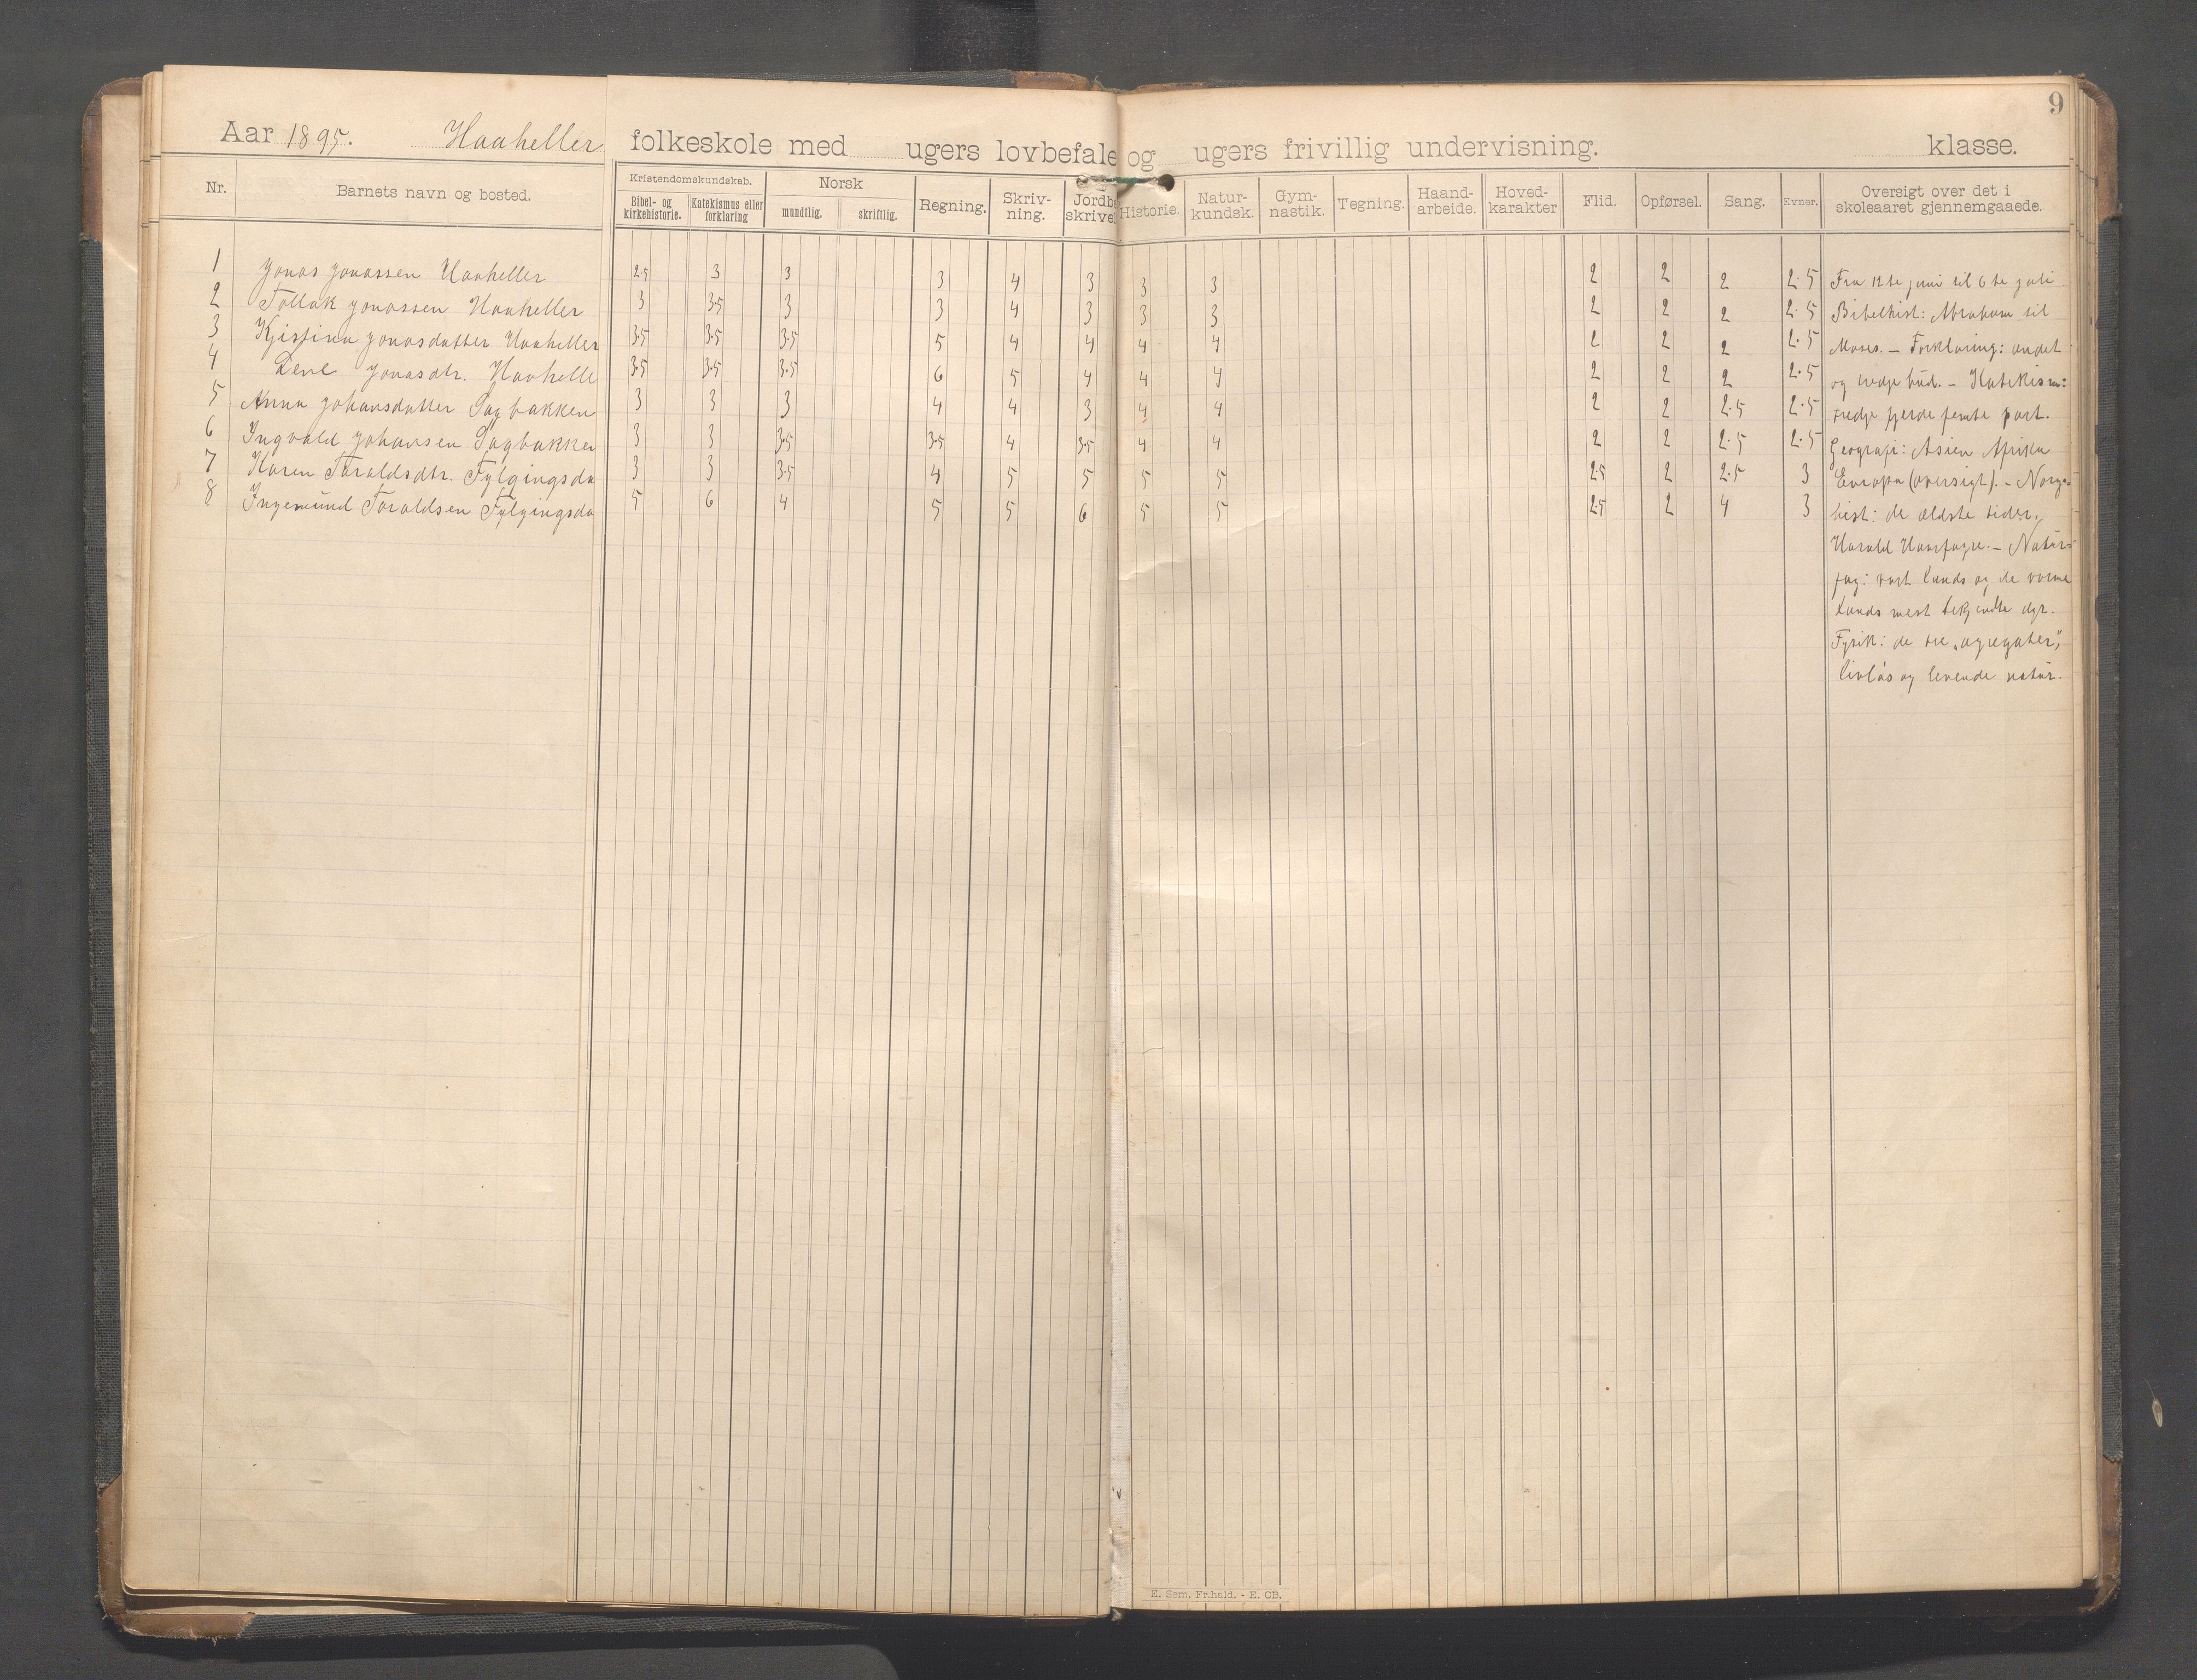 9
Aar 1895. Haaheller folkeskole med ugers lovbefale og ugers frivillig undervisning. klasse.
Nr. Barnets navn og bosted. Kristendomskundskab. Bibel- og kirkehistorie. Katekismus eller forklaring Norsk mundtlig. skriftlig. Regning. Skriv-ning. Jordbe skrivel Historie. Natur-kundsk. Gym-nastik. Tegning. Haand-arbeide. Hoved-karakter Flid. Opførsel. Sang. Evner. Oversigt over det i skoleaaret gjennemgaaede.
1 Jonas Jonassen Haaheller 2.5 3 3 3 4 3 3 3 2 2 2 2.5 Fra 12te juni til 6te juli
2 Tollak Jonassen Haaheller 3 3.5 3 3 4 3 3 3 2 2 2 2.5 Bibelhist: Abraham til
3 Kjistina Jonasdatter Haaheller 3.5 3.5 3.5 5 4 4 4 4 2 2 2 2.5 Moses. – Forklaring: andet
4 Lene Jonasdtr. Haahelle 3.5 3.5 3.5 6 5 4 4 4 2 2 2 2.5 og tredje bud. – Katekism:
5 Anna Johansdatter Sagbakken 3 3 3 4 4 3 4 4 2 2 2.5 2.5 tredje fjerde femte part.
6 Ingvald Johansen Sagbakken 3 3 3.5 3.5 4 3.5 4 4 2 2 2.5 2.5 Geografi: Asien Afrika
7 Karen Taraldsdtr. Fylgingsda 3 3 3.5 4 5 5 5 5 2.5 2 2.5 3 Europa (oversigt). – Norges
8 Ingemund Taraldsen Fylgingsda 5 6 4 5 5 6 5 5 2.5 2 4 3 hist: de ældste tider,
Harald Haarfagre. – Natur-
fag: vort lands og de varme
lands mest bekjendte dyr.
Fysik: de tre „agregater“,
livløs og levende natur.
E. Sem, Fr.hald. - E. CB.